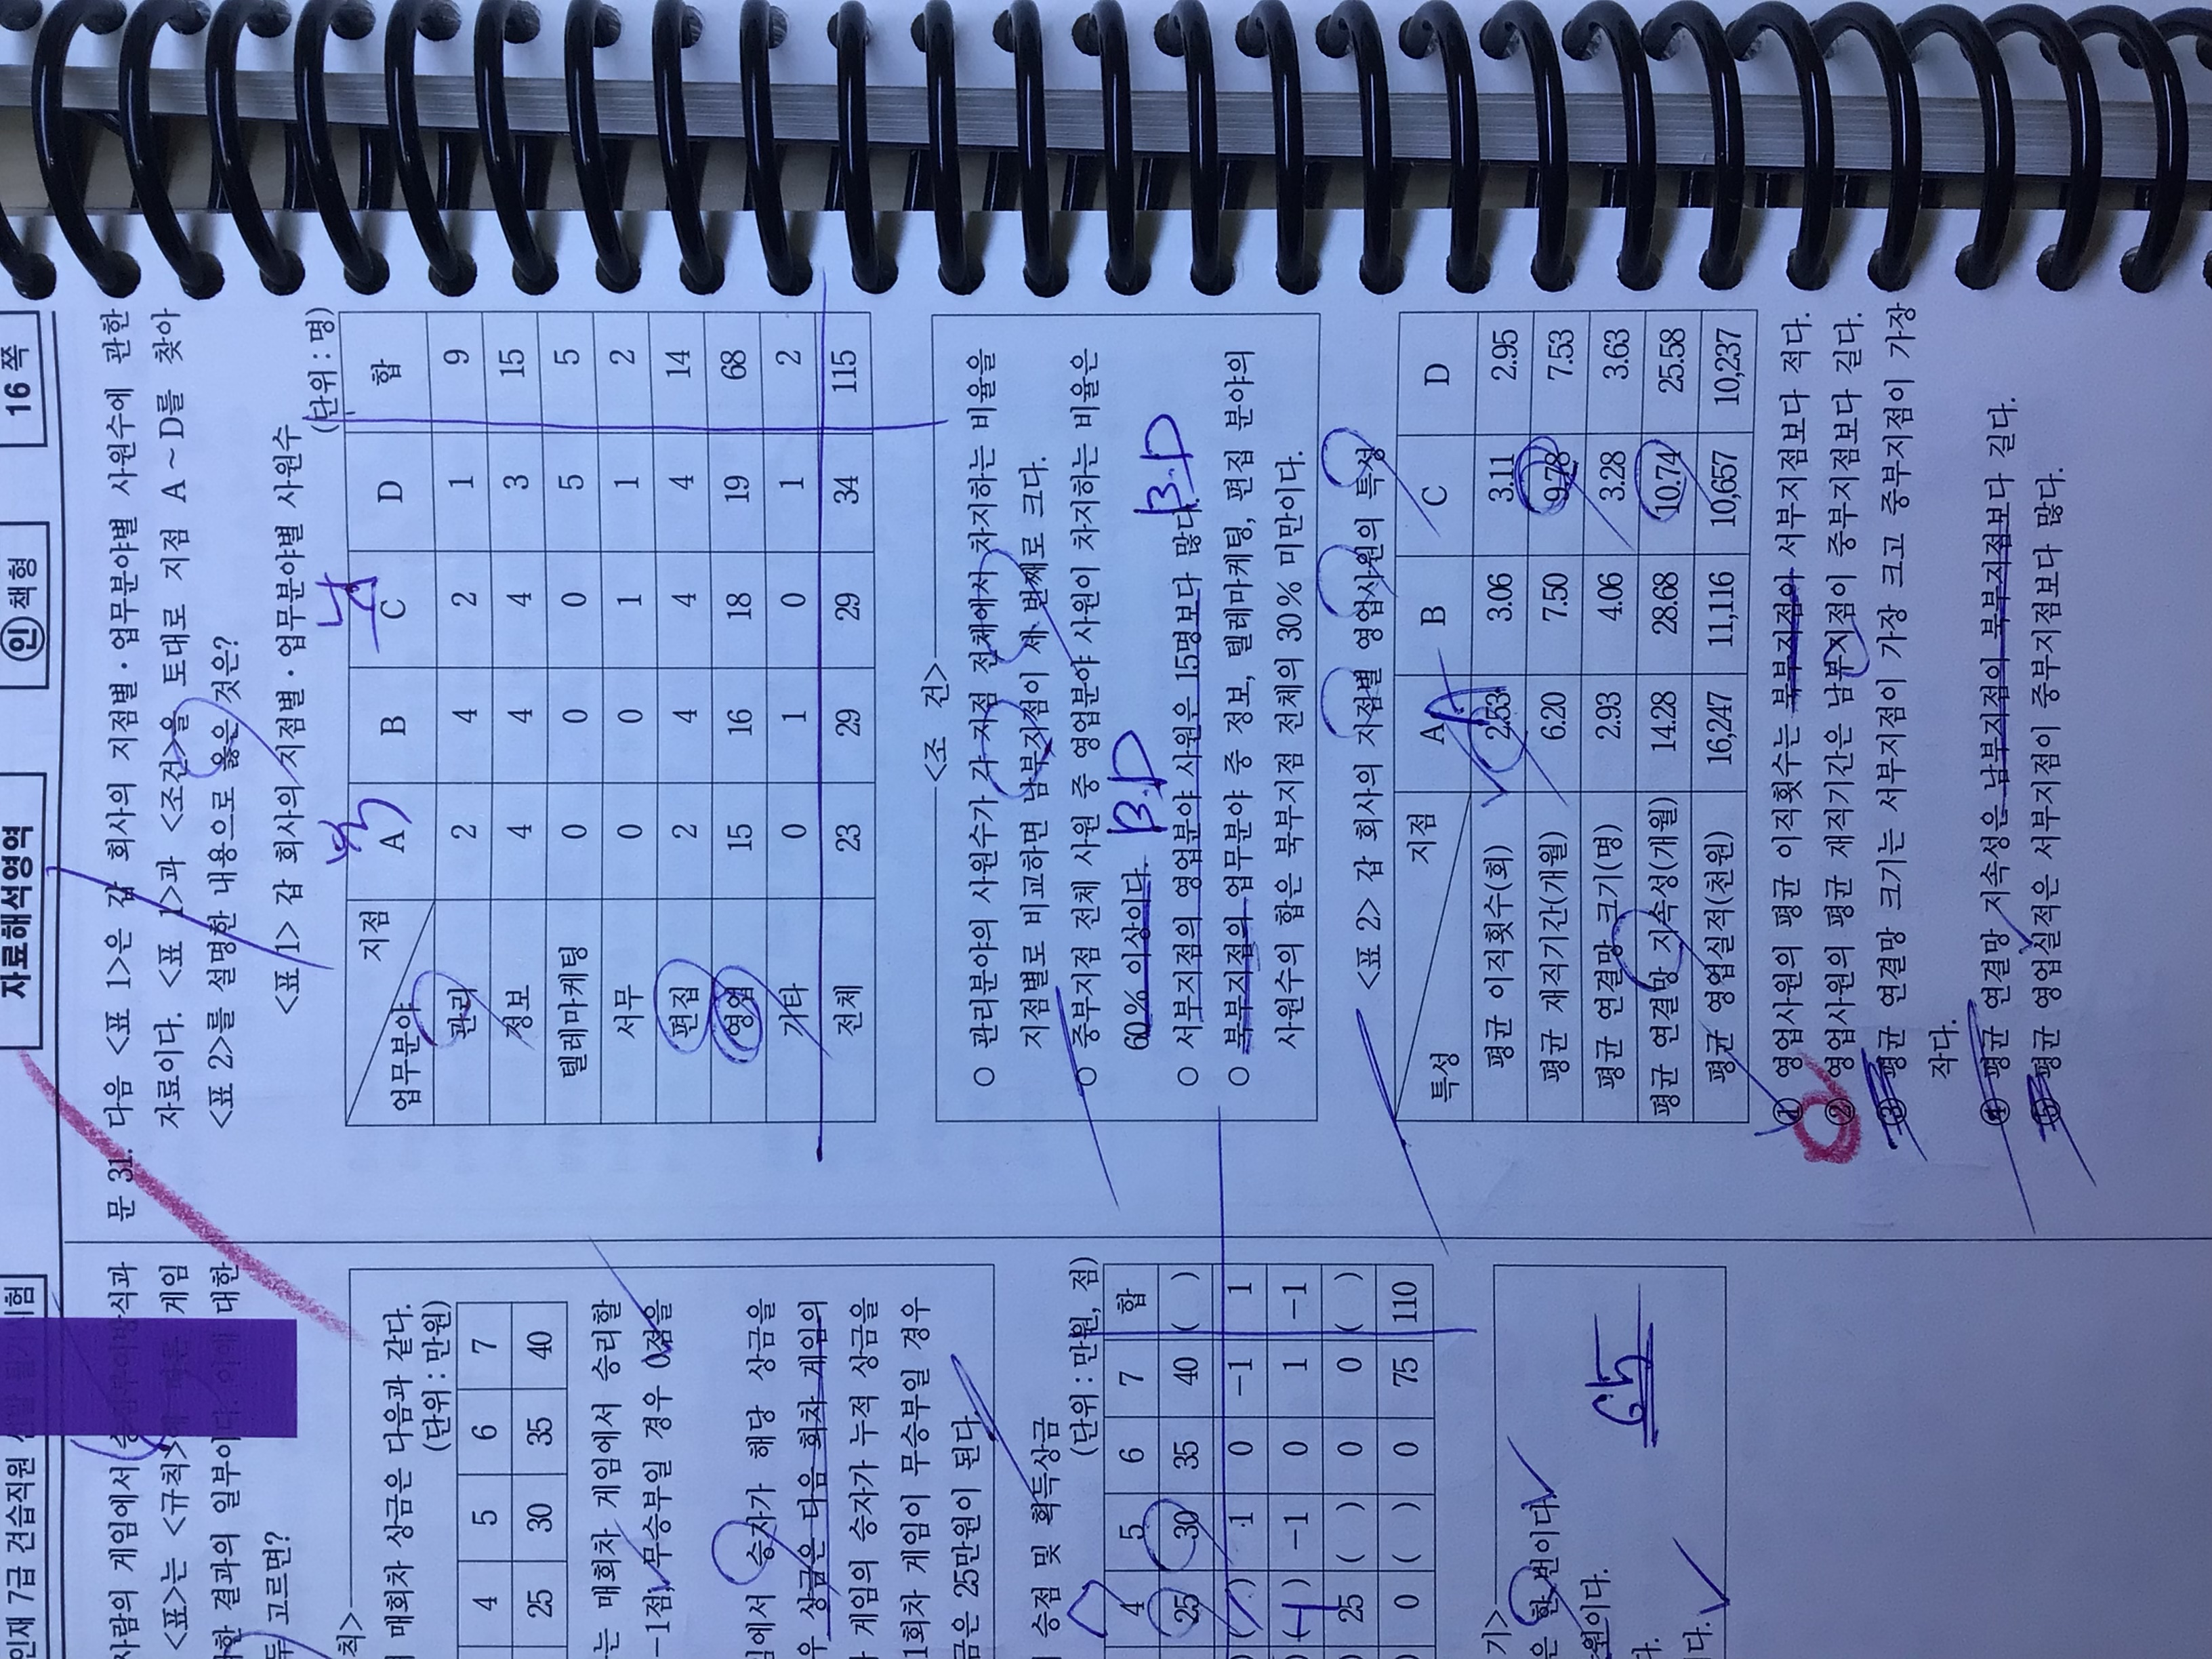 인재 7급 견습직원
자료해석영역
인 책형
16 쪽
사람의 게임에서
<표>는 <규칙>에 게임
한 결과의 일부이다. 이에 대한
두 고르면?
칙>
매회차 상금은 다음과 같다.
(단위 : 만원)
4 5 6 7
25 30 35 40
는 매회차 게임에서 승리할
-1점, 무승부일 경우 0점을
임에서 승자가 해당 상금을
우 상금은 다음 회차 게임의
게임의 승자가 누적 상금을
1회차 게임이 무승부일 경우
금은 25만원이 된다.
승점 및 획득상금
(단위 : 만원, 점)
4 5 6 7 합
25 30 35 40 ( )
( ) 1 0 -1 1
( ) -1 0 1 -1
25 ( ) 0 0 ( )
0 ( ) 0 75 110
기>
은 한 번이다.
원이다.
다.
이다.
문 31. 다음 <표 1>은 갑 회사의 지점별·업무분야별 사원수에 관한
자료이다. <표 1>과 <조건>을 토대로 지점 A ~ D를 찾아
<표 2>를 설명한 내용으로 옳은 것은?
<표 1> 갑 회사의 지점별·업무분야별 사원수
(단위 : 명)
북 남
업무분야 지점 A B C D 합
관리 2 4 2 1 9
정보 4 4 4 3 15
텔레마케팅 0 0 0 5 5
서무 0 0 1 1 2
편집 2 4 4 4 14
영업 15 16 18 19 68
기타 0 1 0 1 2
전체 23 29 29 34 115
<조 건>
○ 관리분야의 사원수가 각 지점 전체에서 차지하는 비율을
지점별로 비교하면 남부지점이 세 번째로 크다.
○ 중부지점 전체 사원 중 영업분야 사원이 차지하는 비율은
60% 이상이다. B.D
○ 서부지점의 영업분야 사원은 15명보다 많다. B.D
○ 북부지점의 업무분야 중 정보, 텔레마케팅, 편집 분야의
사원수의 합은 북부지점 전체의 30% 미만이다.
<표 2> 갑 회사의 지점별 영업사원의 특성
특성 지점 A B C D
평균 이직횟수(회) 2.53 3.06 3.11 2.95
평균 재직기간(개월) 6.20 7.50 9.78 7.53
평균 연결망 크기(명) 2.93 4.06 3.28 3.63
평균 연결망 지속성(개월) 14.28 28.68 10.74 25.58
평균 영업실적(천원) 16,247 11,116 10,657 10,237
① 영업사원의 평균 이직횟수는 북부지점이 서부지점보다 적다.
② 영업사원의 평균 재직기간은 남부지점이 중부지점보다 길다.
③ 평균 연결망 크기는 서부지점이 가장 크고 중부지점이 가장
작다.
④ 평균 연결망 지속성은 남부지점이 북부지점보다 길다.
⑤ 평균 영업실적은 서부지점이 중부지점보다 많다.